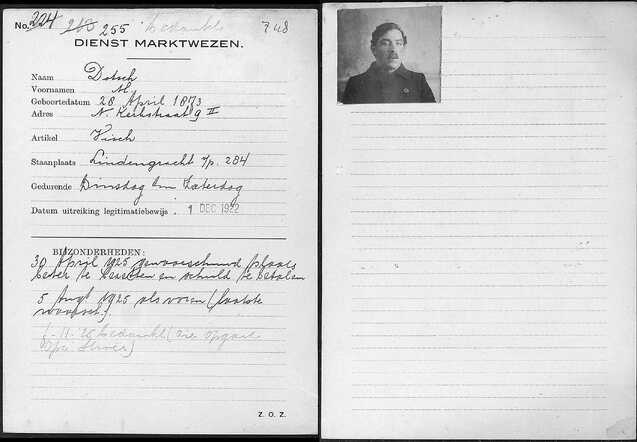 No. 224 210 255 bedankt 748
DIENST MARKTWEZEN.
Naam Dotsch
Voornamen M.
Geboortedatum 28 April 1873
Adres N. Kerkstraat 9 II
Artikel Visch
Staanplaats Lindengracht o/p. 284
Gedurende Dinsdag t/m Zaterdag
Datum uitreiking legitimatiebewijs. 1 DEC 1922
BIJZONDERHEDEN:
30 April 1925 gewaarschuwd plaats
beter te bezetten en schuld te betalen
5 Augt 1925 als voren (laatste
waarsch.)
1-11-25 bedankt (zie opgave
Z. O. Z.